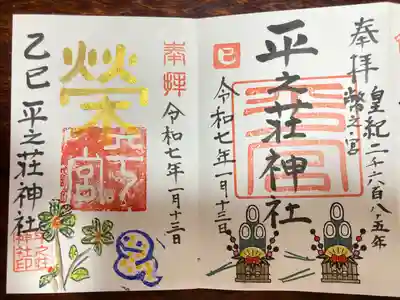 奉拝
皇紀二千六百八五年
幣之宮
平之荘神社
巳
令和七年一月十三日
奉拝
令和七年一月十三日
榮
乙巳 平之荘神社